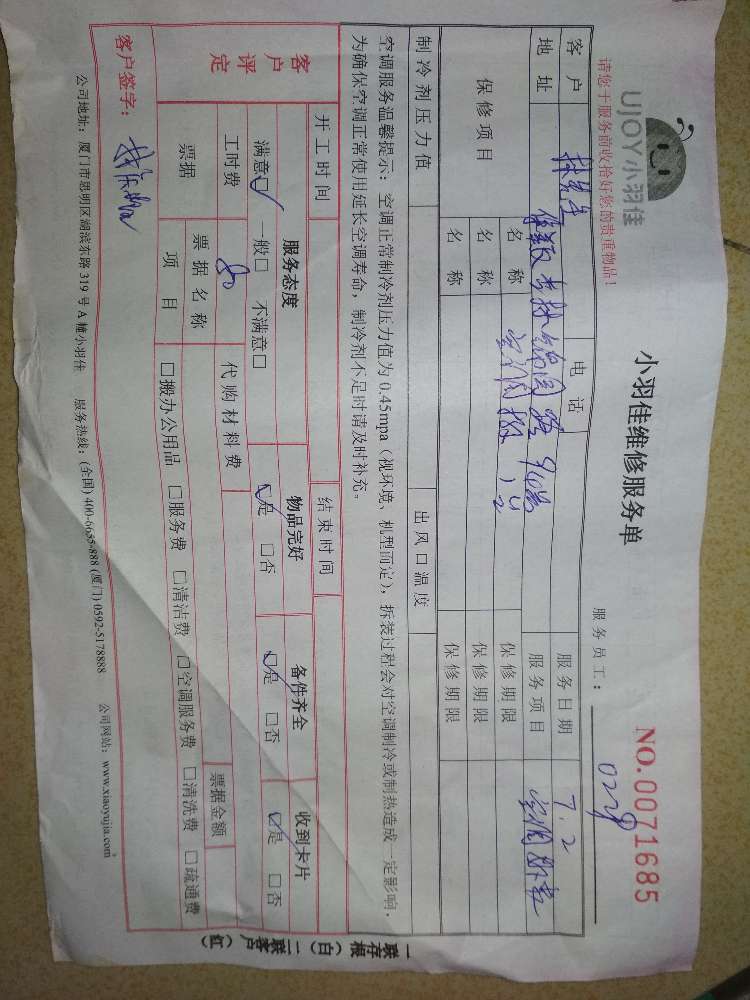 UJOY小羽佳
小羽佳维修服务单
NO.0071685
请您于服务前收拾好您的贵重物品！
服务员工：
客户
电话
服务日期 7.2
地址
服务项目
保修项目
名称
保修期限
名称
保修期限
名称
保修期限
制冷剂压力值
出风口温度
空调服务温馨提示：空调正常制冷剂压力值为0.45mpa（视环境、机型而定），拆装过程会对空调制冷或制热造成一定影响，
为确保空调正常使用延长空调寿命，制冷剂不足时请及时补充。
开工时间
结束时间
客户评定
服务态度
物品完好
备件齐全
收到卡片
满意☑ 一般□ 不满意□
☑是 □否
☑是 □否
☑是 □否
工时费
代购材料费
票据
票据名称
票据金额
项目
□搬办公用品 □服务费 □清洁费 □空调服务费 □清洗费 □疏通费
客户签字：
公司地址：厦门市思明区湖滨东路319号A幢小羽佳 服务热线：(全国) 400-6655-888 (厦门) 0592-5178888 公司网站：www.xiaoyujia.com
一联存根（白）二联客户（红）